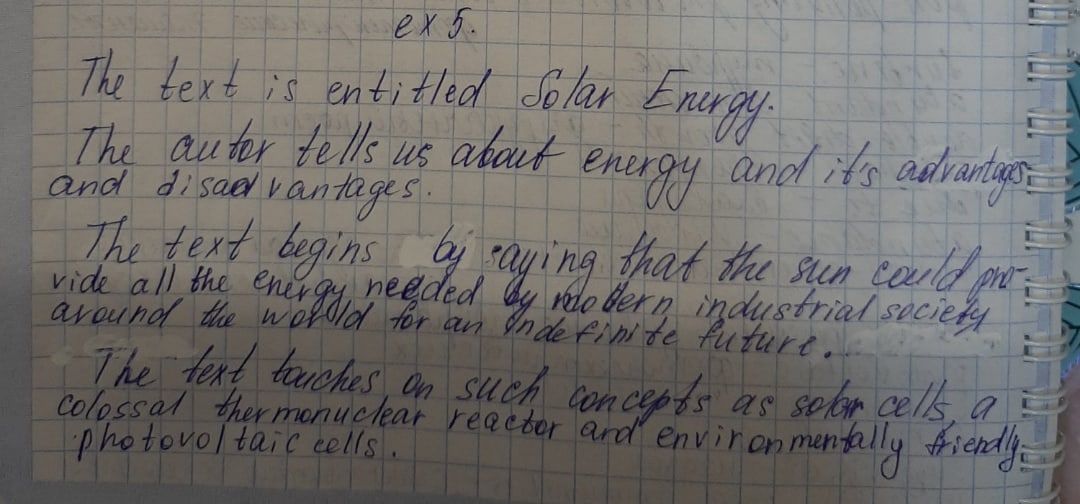 ex 5.
The text is entitled Solar Energy.
The autor tells us about energy and it's advantages
and disadvantages.
The text begins by saying that the sun could pro-
vide all the energy needed by modern industrial society
around the world for an indefinite future.
The text touches on such concepts as solar cells, a
colossal thermonuclear reactor and environmentally friendly
photovoltaic cells.